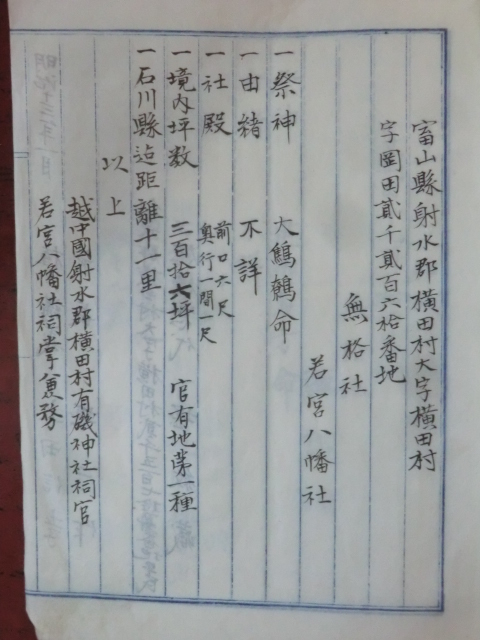 富山縣射水郡横田村大字横田村
字岡田貳千貳百六拾番地
無格社
若宮八幡社
一祭神 大鷦鷯命
一由緒 不詳
一社殿 前口六尺
奥行一間一尺
一境内坪数 三百拾六坪 官有地第一種
一石川縣迠距離十一里
以上
越中國射水郡横田村有磯神社祠官
若宮八幡社祠掌兼務